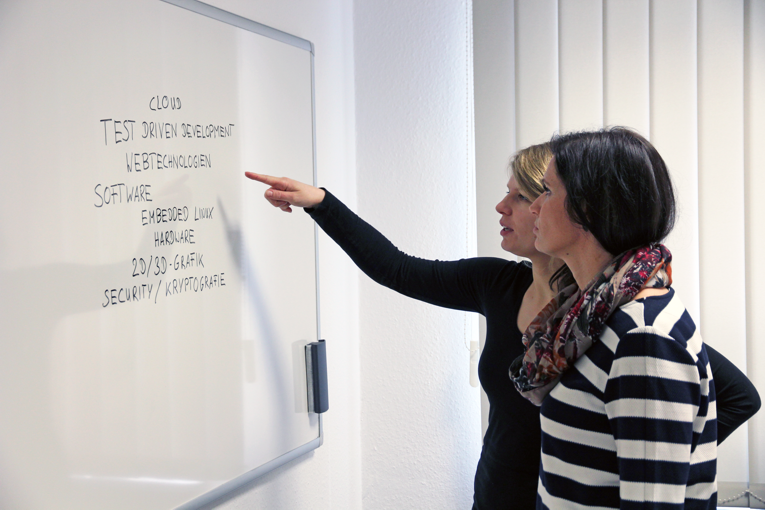 CLOUD
TEST DRIVEN DEVELOPMENT
WEBTECHNOLOGIEN
SOFTWARE
EMBEDDED LINUX
HARDWARE
2D/3D-GRAFIK
SECURITY/KRYPTOGRAFIE